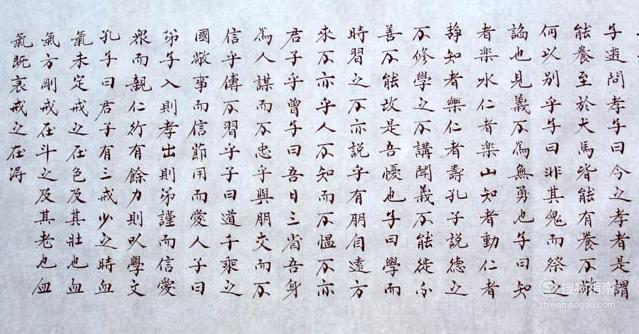 子遊問孝子曰今之孝者是謂
能養至於犬馬皆能有養不敬
何以別乎子曰非其鬼而祭之
諂也見義不為無勇也子曰知
者樂水仁者樂山知者動仁者
靜知者樂仁者壽孔子說德之
不修學之不講聞義不能徙不
善不能改是吾憂也子曰學而
時習之不亦說乎有朋自遠方
來不亦乎人不知而不慍不亦
君子乎曾子曰吾日三省吾身
為人謀而不忠乎與朋交而不
信乎傳不習乎子曰道千乘之
國敬事而信節用而愛人子曰
弟子入則孝出則弟謹而信愛
眾而親仁行有餘力則以學文
孔子曰君子有三戒少之時血
氣未定戒之在色及其壯也血
氣方剛戒在斗之及其老也血
氣既衰戒之在得
搜狗指南
zhinan.sogou.com